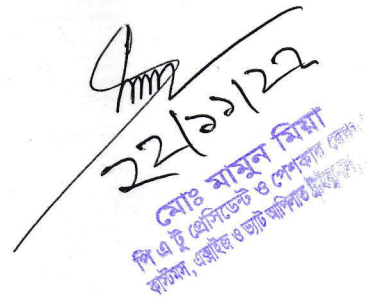 ২২/১১/২২
মোঃ মামুন মিয়া
পি এ টু প্রেসিডেন্ট ও পেশকার
কাস্টমস, এক্সাইজ ও ভ্যাট আপিলাত ট্রাইব্যুনাল,